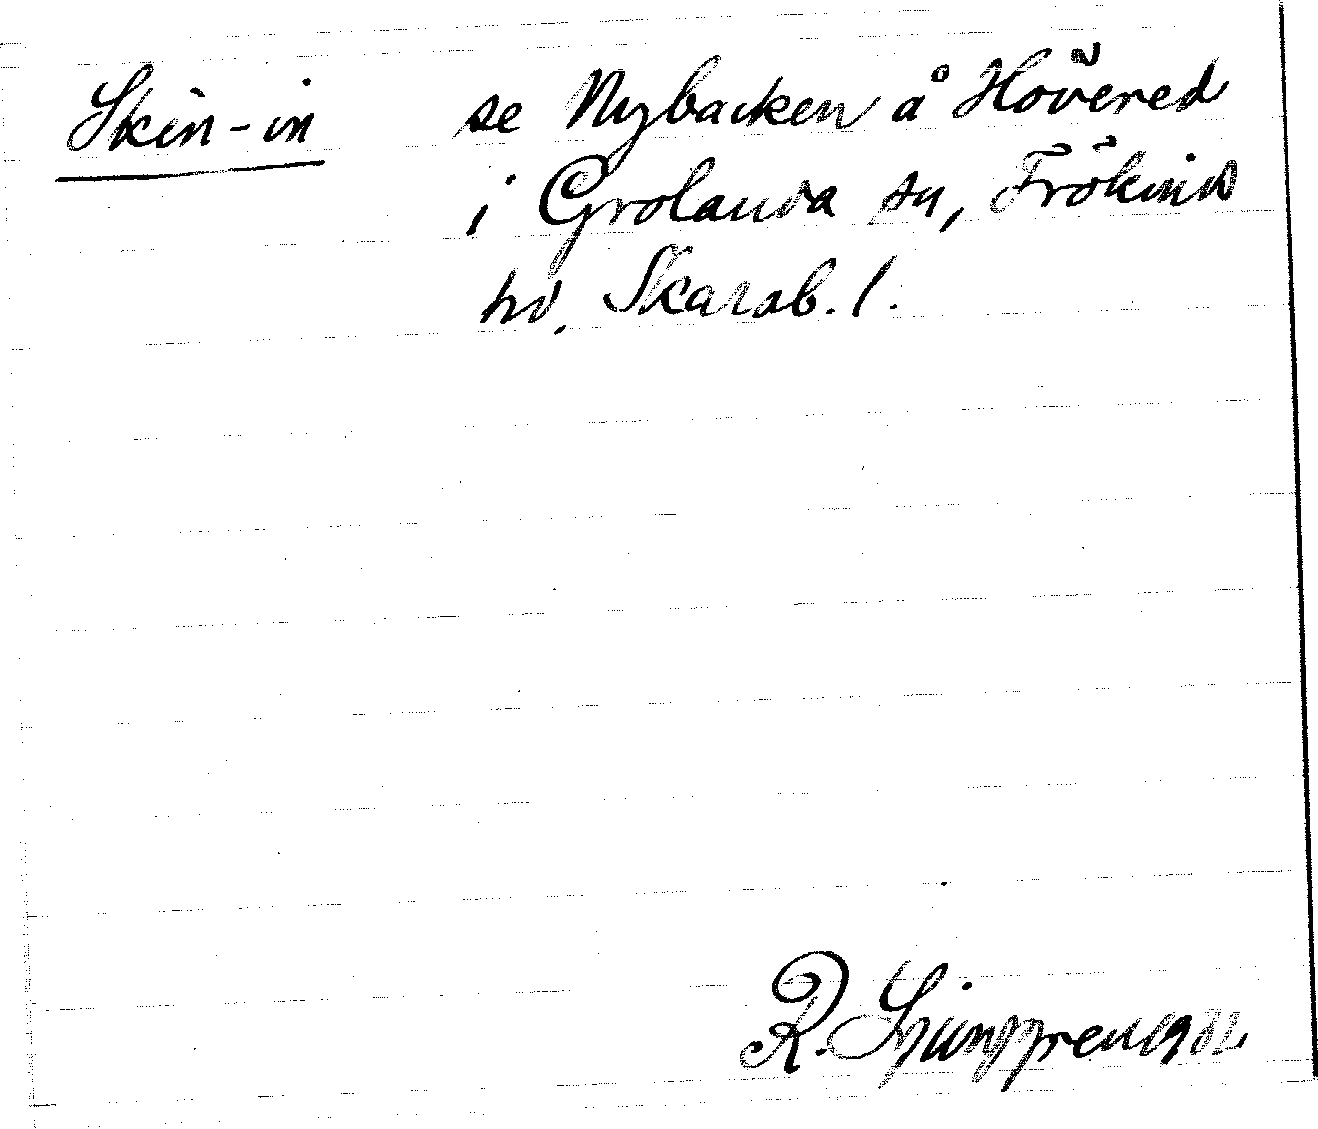 Skin-in se Nybacken å Hövered
i Grolanda sn, Frökinds
hd, Skarab. l.
R. Ljunggren 1932